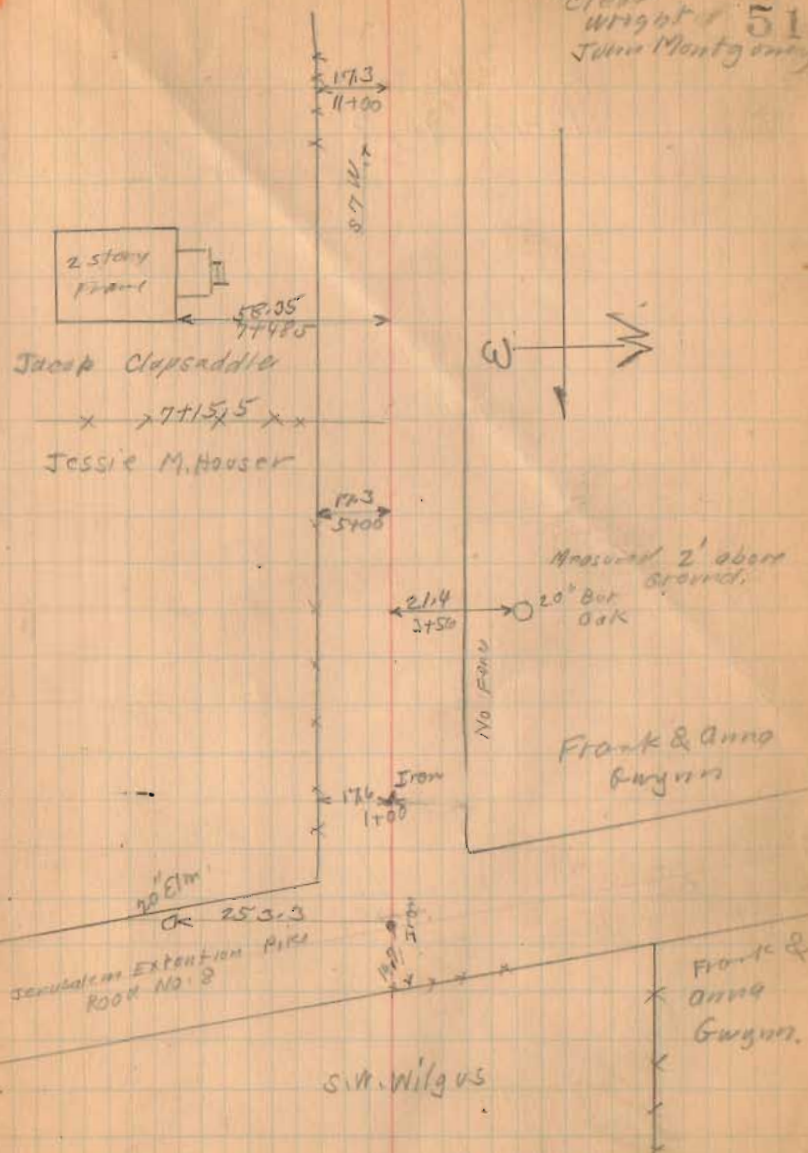 51
Wright &
John Montgomery
17.3
11+00
S 7 W.
2 Story
Frame
58.35
7+48.5
Jacob Clapsaddler
7+15.5
Jessie M. Houser
17.3
5+00
Measured 2' above
Ground.
21.4
3+56
20" Bur
Oak
No Fence
Frank & Anna
Gwynn
Iron
17.6
1+00
20" Elm
253.3
Iron
Jerusalem Extention Pike
Road No. 8
Frank &
Anna
Gwynn.
S.W. Wilgus